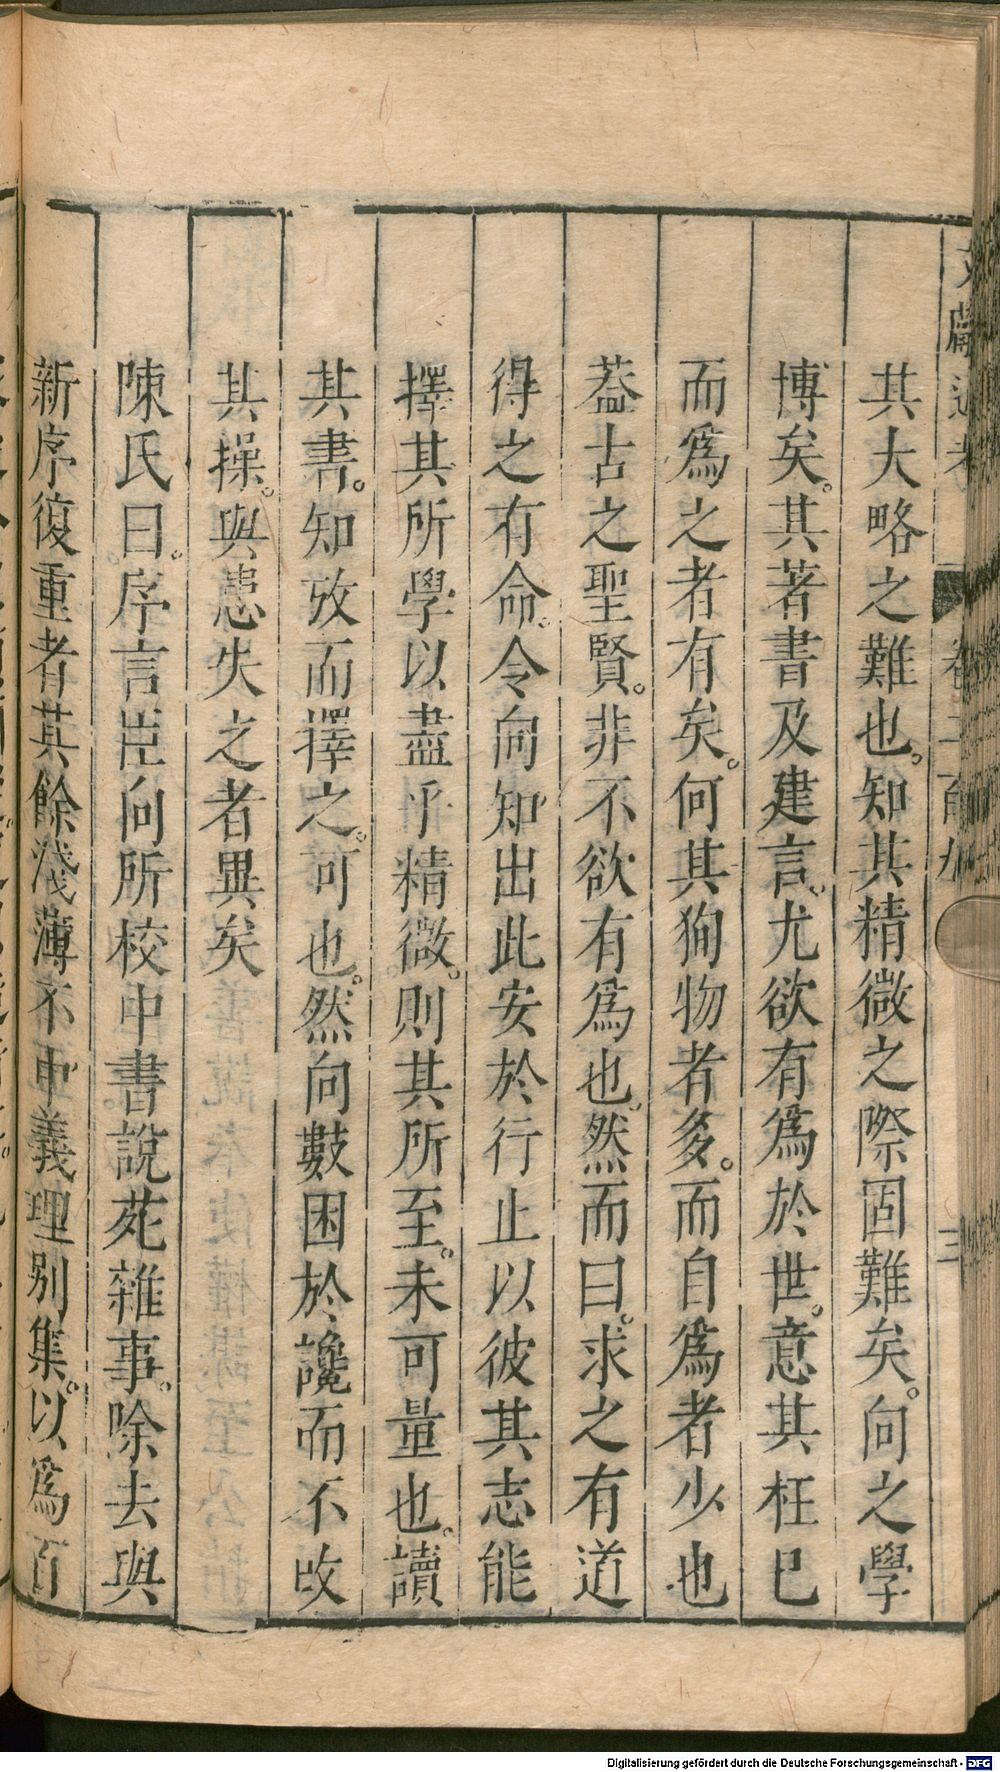 文獻通考 卷二百九 三
其大略之難也。知其精微之際固難矣。向之學
博矣。其著書及建言。尤欲有爲於世。意其枉已
而爲之者有矣。何其狥物者多。而自爲者少也
葢古之聖賢。非不欲有爲也。然而曰。求之有道
得之有命。令向知出此安於行止以彼其志能
擇其所學以盡乎精微。則其所至。未可量也。讀
其書。知攷而擇之。可也。然向數困於讒而不改
其操。與患失之者異矣
陳氏曰。序言臣向所校中書說苑雜事。除去與
新序復重者其餘淺薄不中義理別集。以爲百
Digitalisierung gefördert durch die Deutsche Forschungsgemeinschaft - DFG